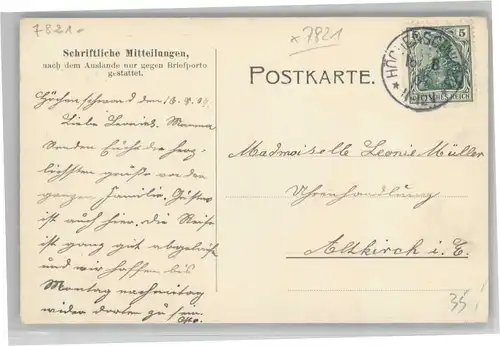 7821.
x 7821
Schriftliche Mitteilungen,
nach dem Auslande nur gegen Briefporto
gestattet.
POSTKARTE.
5
HÖCHENSCHWAND
Höchenschwand den 18.
Liebe Leonie. Mamma
Senden Euch die herz-
lichsten grüße von der
ganzen Familie. Gustav
ist auch hier. die Reise
ist ganz gut abgelaufen
und wir hoffen bis
Montag nachmittag
wieder dorten zu sein
Otto.
Madmoiselle Leonie Müller
Uhrenhandlung
Altkirch i. E.
35